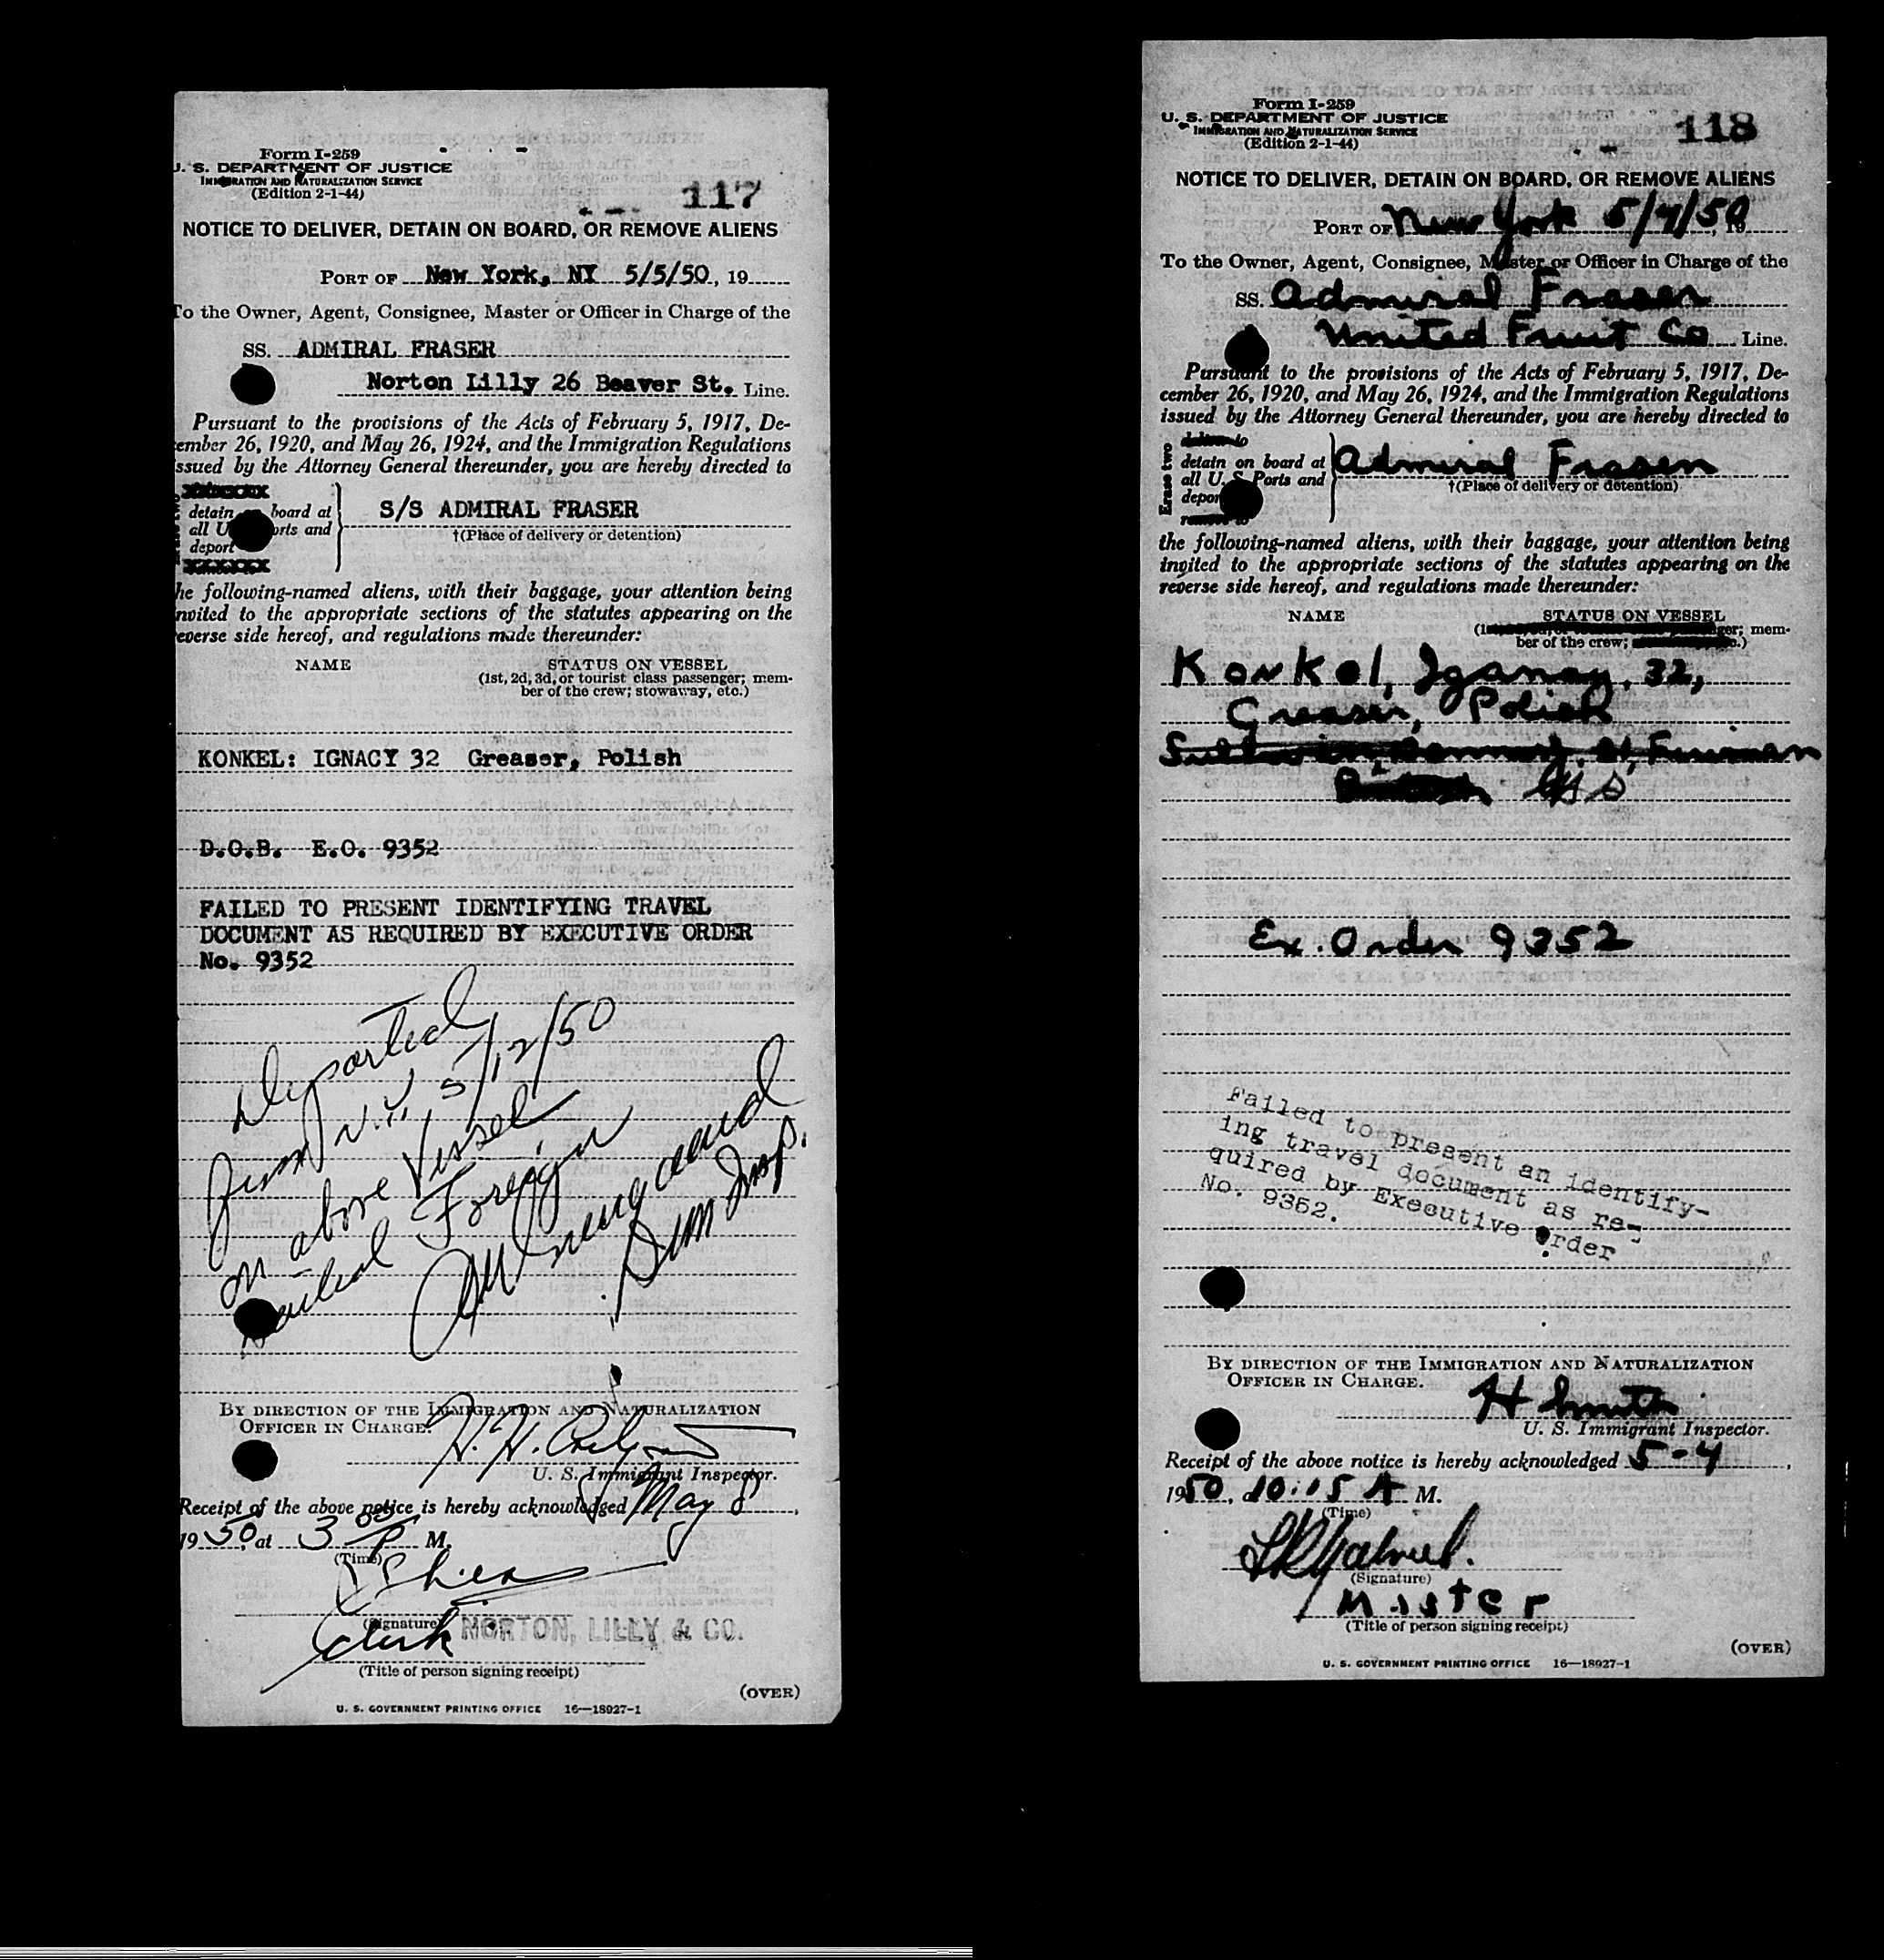 Form I-259
U. S. DEPARTMENT OF JUSTICE
IMMIGRATION AND NATURALIZATION SERVICE
(Edition 2-1-44)
117
NOTICE TO DELIVER, DETAIN ON BOARD, OR REMOVE ALIENS
PORT OF New York, NY 5/5/50, 19
To the Owner, Agent, Consignee, Master or Officer in Charge of the
SS. ADMIRAL FRASER
Norton Lilly 26 Beaver St. Line.
Pursuant to the provisions of the Acts of February 5, 1917, De-
cember 26, 1920, and May 26, 1924, and the Immigration Regulations
issued by the Attorney General thereunder, you are hereby directed to
detain on board at
all U. S. Ports and
deport
S/S ADMIRAL FRASER
†(Place of delivery or detention)
the following-named aliens, with their baggage, your attention being
invited to the appropriate sections of the statutes appearing on the
reverse side hereof, and regulations made thereunder:
NAME STATUS ON VESSEL
(1st, 2d, 3d, or tourist class passenger; mem-
ber of the crew; stowaway, etc.)
KONKEL: IGNACY 32 Greaser, Polish
D.O.B. E.O. 9352
FAILED TO PRESENT IDENTIFYING TRAVEL
DOCUMENT AS REQUIRED BY EXECUTIVE ORDER
No. 9352
Deported
from N.Y. 5/12/50
on above Vessel
Foreign
Imm Insp.
BY DIRECTION OF THE IMMIGRATION AND NATURALIZATION
OFFICER IN CHARGE.
H. H.
U. S. Immigrant Inspector.
Receipt of the above notice is hereby acknowledged May 8,
1950, at 3 05 P M.
(Time)
Shea
(Signature) NORTON, LILLY & CO.
Clerk
(Title of person signing receipt)
(OVER)
U. S. GOVERNMENT PRINTING OFFICE 16—18927-1
Form I-259
U. S. DEPARTMENT OF JUSTICE
IMMIGRATION AND NATURALIZATION SERVICE
(Edition 2-1-44)
118
NOTICE TO DELIVER, DETAIN ON BOARD, OR REMOVE ALIENS
PORT OF New York 5/4/50, 19
To the Owner, Agent, Consignee, Master or Officer in Charge of the
SS. Admiral Fraser
United Fruit Co Line.
Pursuant to the provisions of the Acts of February 5, 1917, De-
cember 26, 1920, and May 26, 1924, and the Immigration Regulations
issued by the Attorney General thereunder, you are hereby directed to
Erase two
deliver to
detain on board at
all U. S. Ports and
deport
remove to
Admiral Fraser
†(Place of delivery or detention)
the following-named aliens, with their baggage, your attention being
invited to the appropriate sections of the statutes appearing on the
reverse side hereof, and regulations made thereunder:
NAME STATUS ON VESSEL
mem-
ber of the crew;
Konkel, Ignacy, 32,
Greaser, Polish
Fireman
Ex. Order 9352
Failed to present an identify-
ing travel document as re-
quired by Executive Order
No. 9352.
BY DIRECTION OF THE IMMIGRATION AND NATURALIZATION
OFFICER IN CHARGE.
H Smith
U. S. Immigrant Inspector.
Receipt of the above notice is hereby acknowledged 5-4,
1950, at 10:15 A M.
(Time)
(Signature)
Master
(Title of person signing receipt)
(OVER)
U. S. GOVERNMENT PRINTING OFFICE 16—18927-1